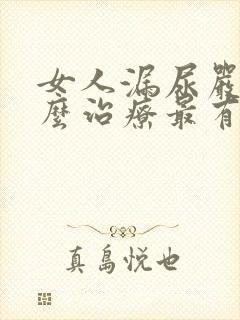 女人漏尿嚴
麼治療最有
真島悦也